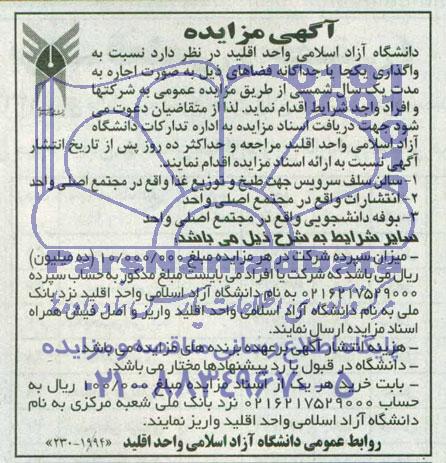 آگهی مزایده
دانشگاه آزاد اسلامی واحد اقلید در نظر دارد نسبت به
واگذاری یکجا یا جداگانه فضاهای ذیل به صورت اجاره به
مدت یک سال شمسی از طریق مزایده عمومی به شرکتها
و افراد واجد شرایط اقدام نماید. لذا از متقاضیان دعوت می
شود جهت دریافت اسناد مزایده به اداره تدارکات دانشگاه
آزاد اسلامی واحد اقلید مراجعه و حداکثر ده روز پس از تاریخ انتشار
آگهی نسبت به ارائه اسناد مزایده اقدام نمایند.
۱- سالن سلف سرویس جهت طبخ و توزیع غذا واقع در مجتمع اصلی واحد
۲- انتشارات واقع در مجتمع اصلی واحد
۳- بوفه دانشجویی واقع در مجتمع اصلی واحد
سایر شرایط به شرح ذیل می باشد:
- میزان سپرده شرکت در هر مزایده مبلغ ۱۰/۰۰۰/۰۰۰ (ده میلیون)
ریال می باشد که شرکت یا افراد می بایست مبلغ مذکور به حساب سپرده
۰۲۱۶۲۱۷۵۲۹۰۰۰ به نام دانشگاه آزاد اسلامی واحد اقلید نزد بانک
ملی به نام دانشگاه آزاد اسلامی واحد اقلید واریز و اصل فیش همراه
اسناد مزایده ارسال نمایند.
- هزینه انتشار آگهی بر عهده برنده های مزایده می باشد.
- دانشگاه در قبول یا رد پیشنهادها مختار می باشد.
- بابت خرید هر یک از اسناد مزایده مبلغ ۱۰۰/۰۰۰ ریال به
حساب ۰۲۱۶۲۱۷۵۲۹۰۰۰ نزد بانک ملی شعبه مرکزی به نام
دانشگاه آزاد اسلامی واحد اقلید واریز نمایند.
روابط عمومی دانشگاه آزاد اسلامی واحد اقلید «۱۹۹۴-۲۳۰»
پایگاه اطلاع رسانی مناقصه و مزایده
۰۲۱-۸۸۳۴۹۶۷۰-۵